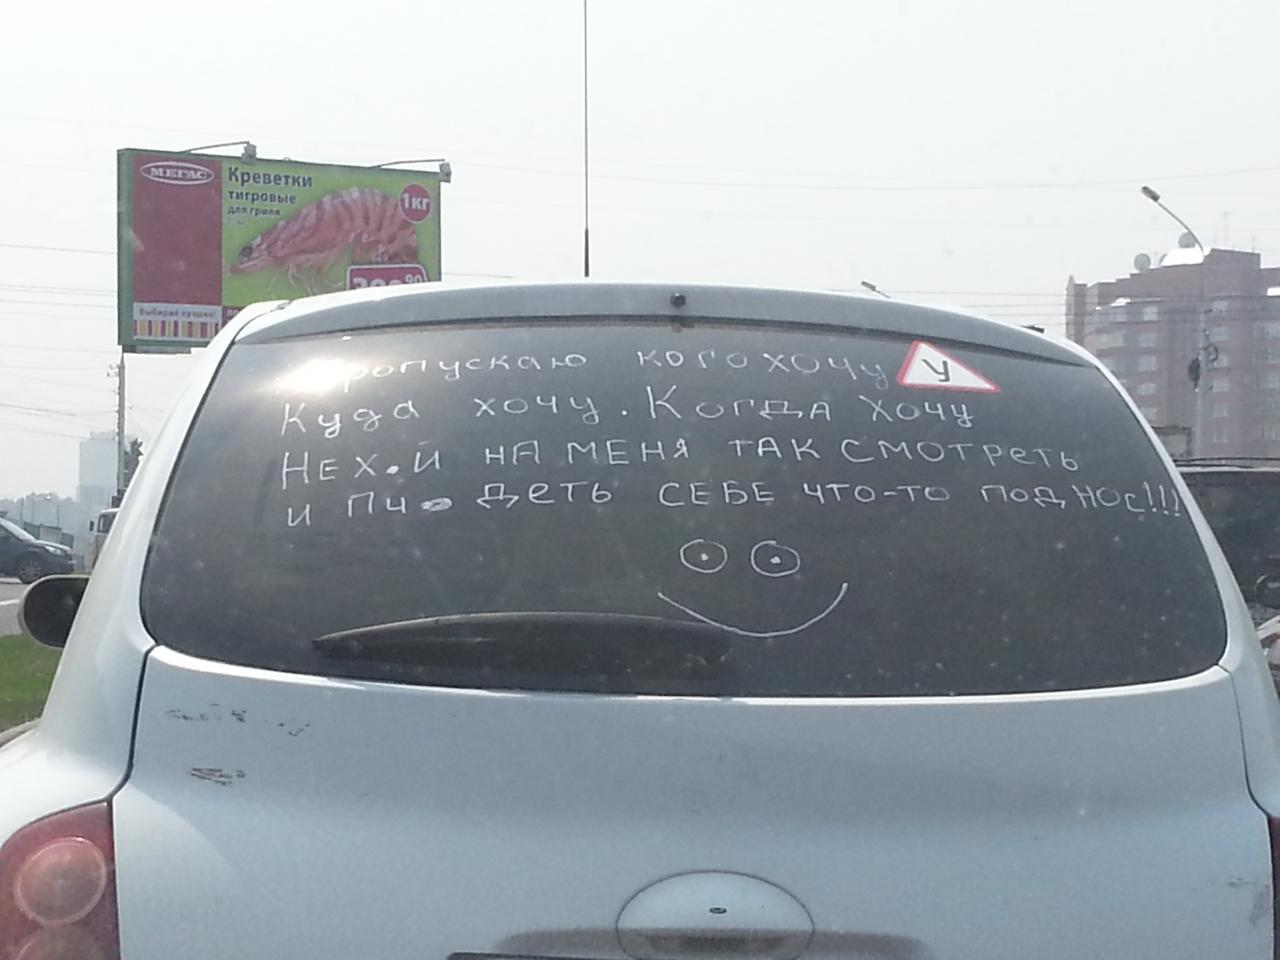 МЕГАС
Креветки
тигровые
для гриля
1кг
Выбирай лучшее!
Пропускаю кого хочу
У
Куда хочу. Когда хочу
Нех.й на меня так смотреть
и пи деть себе что-то под нос!!!